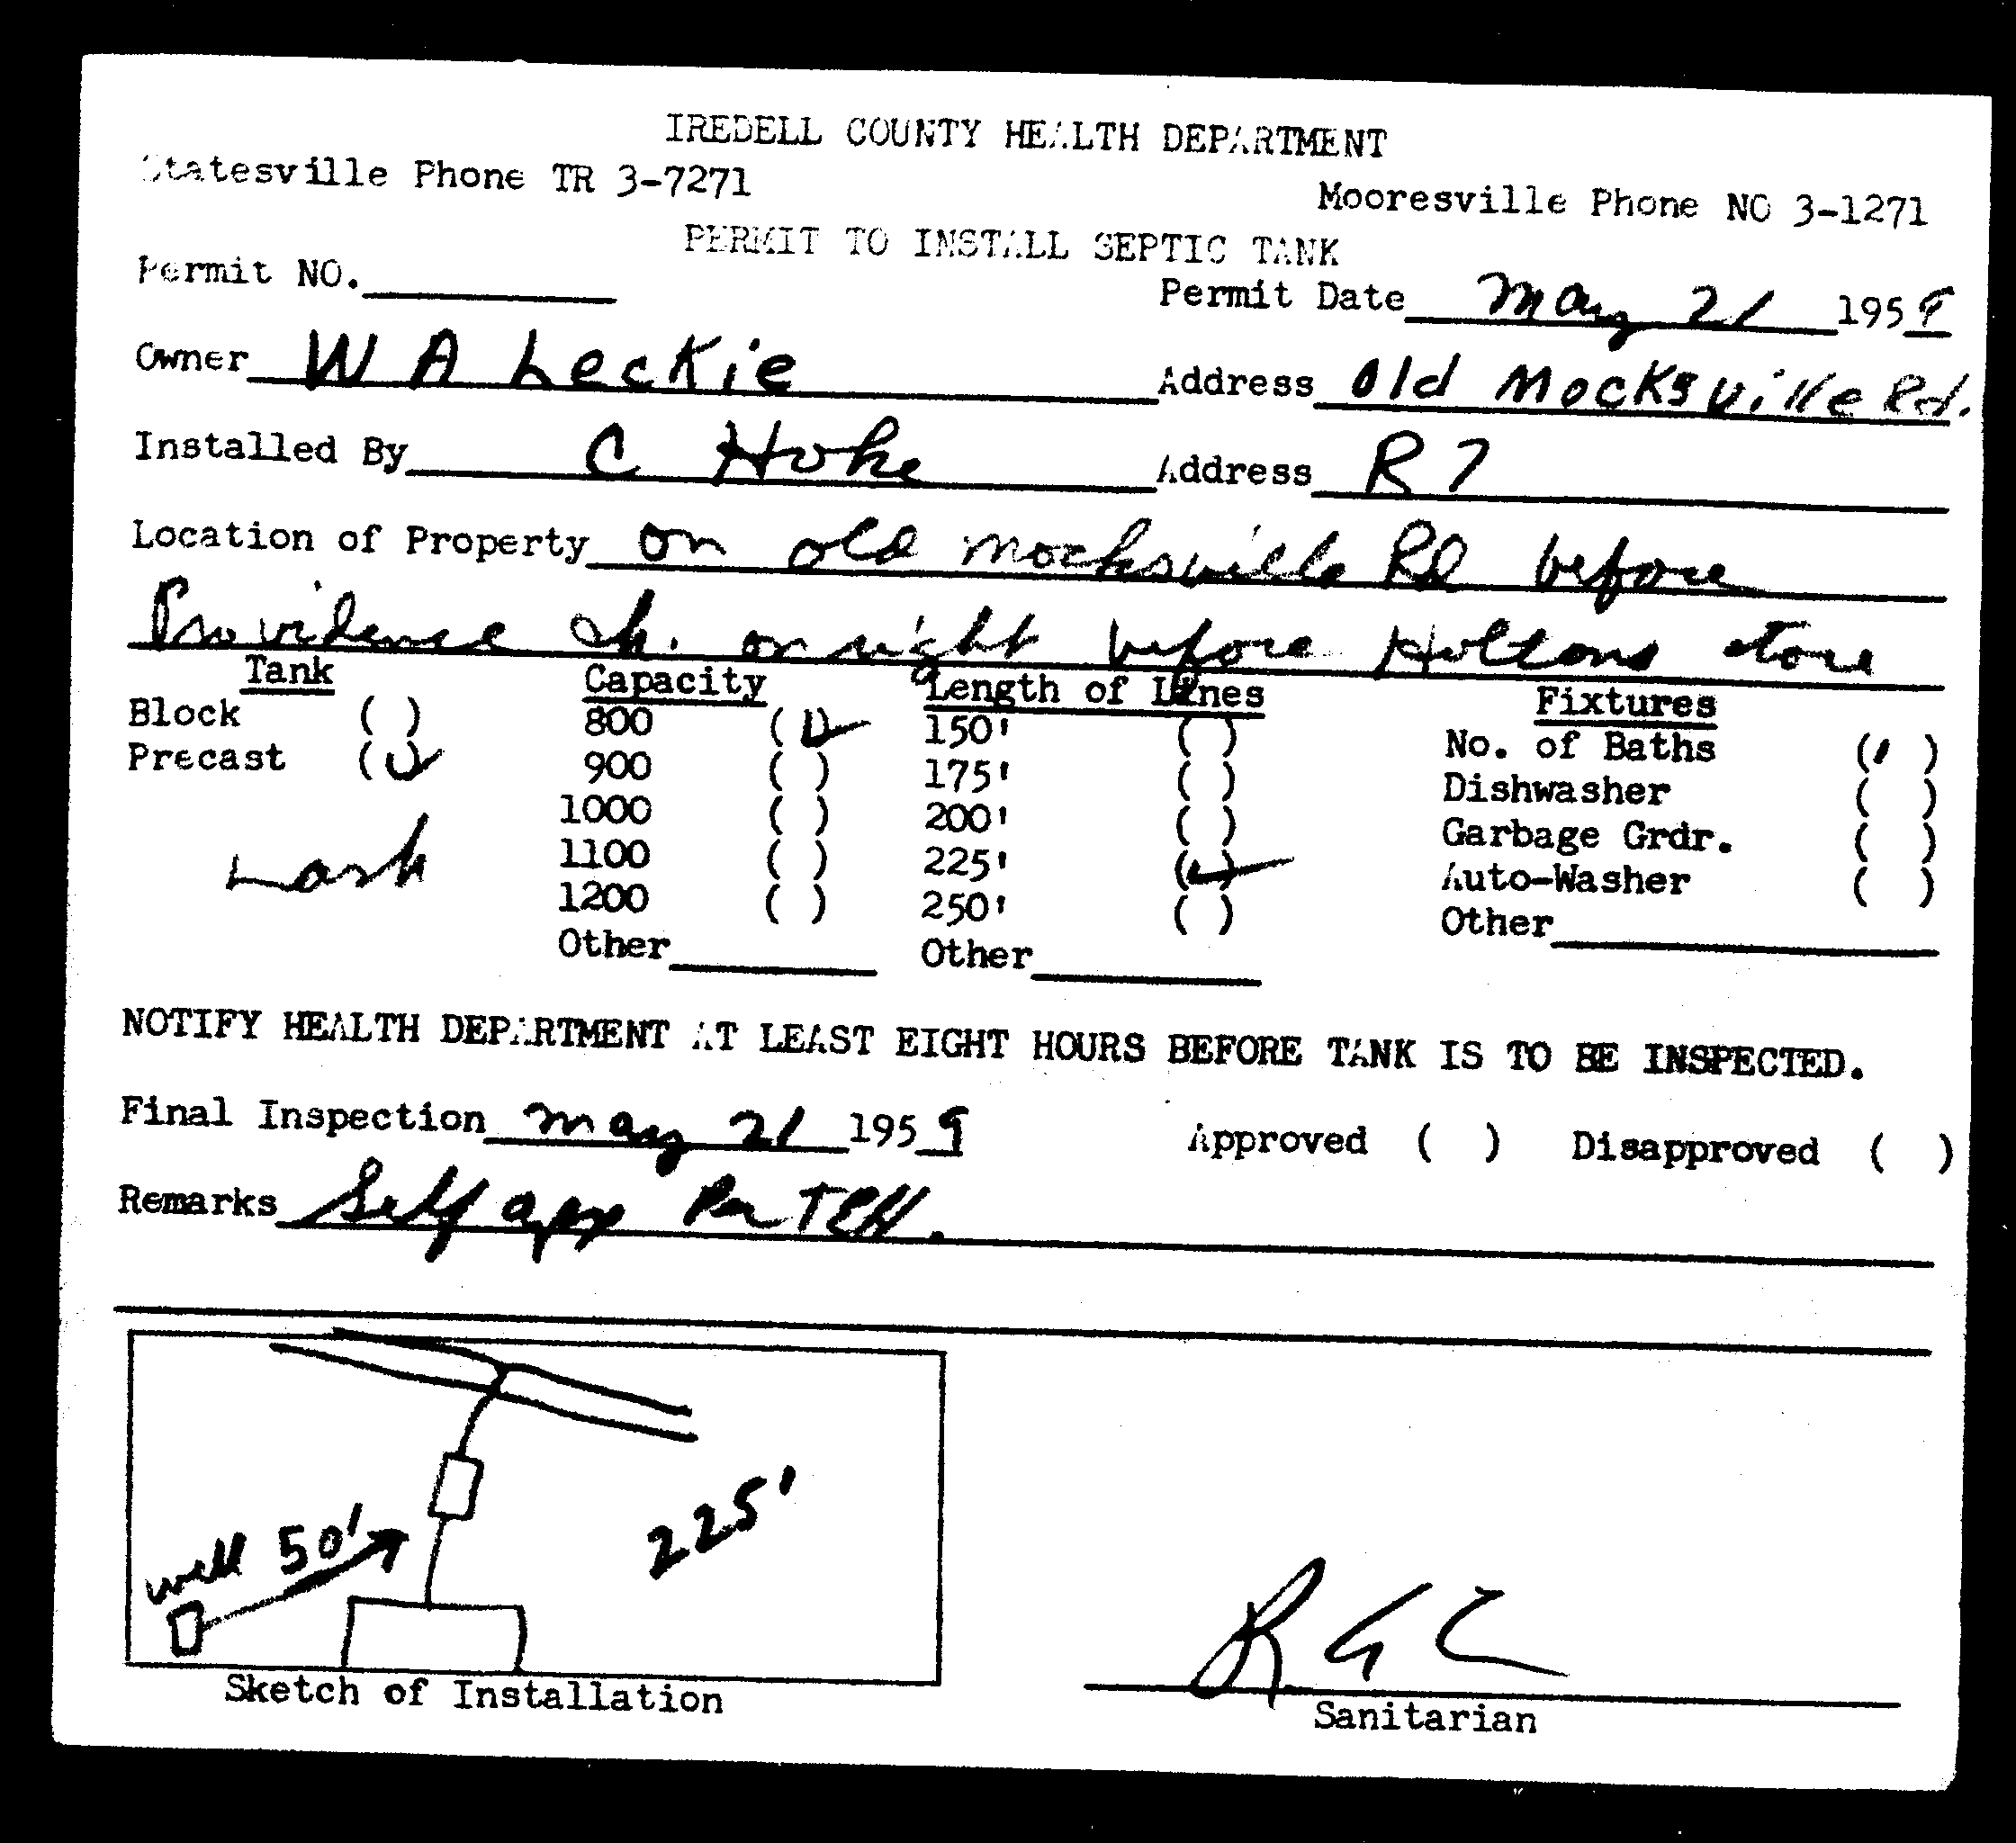 IREDELL COUNTY HEALTH DEPARTMENT
Statesville Phone TR 3-7271
Mooresville Phone NO 3-1271
PERMIT TO INSTALL SEPTIC TANK
Permit NO.
Permit Date May 21 1959
Owner W A Leckie
Address Old Mocksville Rd.
Installed By C Hoke
Address R 7
Location of Property on old mocksville Rd before
Providence Ch. on right before Holtons store
Tank Capacity Length of Lines Fixtures
Block ( ) 800 (✓) 150' ( ) No. of Baths (1 )
Precast (✓) 900 ( ) 175' ( ) Dishwasher ( )
1000 ( ) 200' ( ) Garbage Grdr. ( )
Lash 1100 ( ) 225' (✓) Auto-Washer ( )
1200 ( ) 250' ( ) Other
Other Other
NOTIFY HEALTH DEPARTMENT AT LEAST EIGHT HOURS BEFORE TANK IS TO BE INSPECTED.
Final Inspection May 21 1959 Approved ( ) Disapproved ( )
Remarks Self app Per
well 50'
225'
Sketch of Installation
Sanitarian